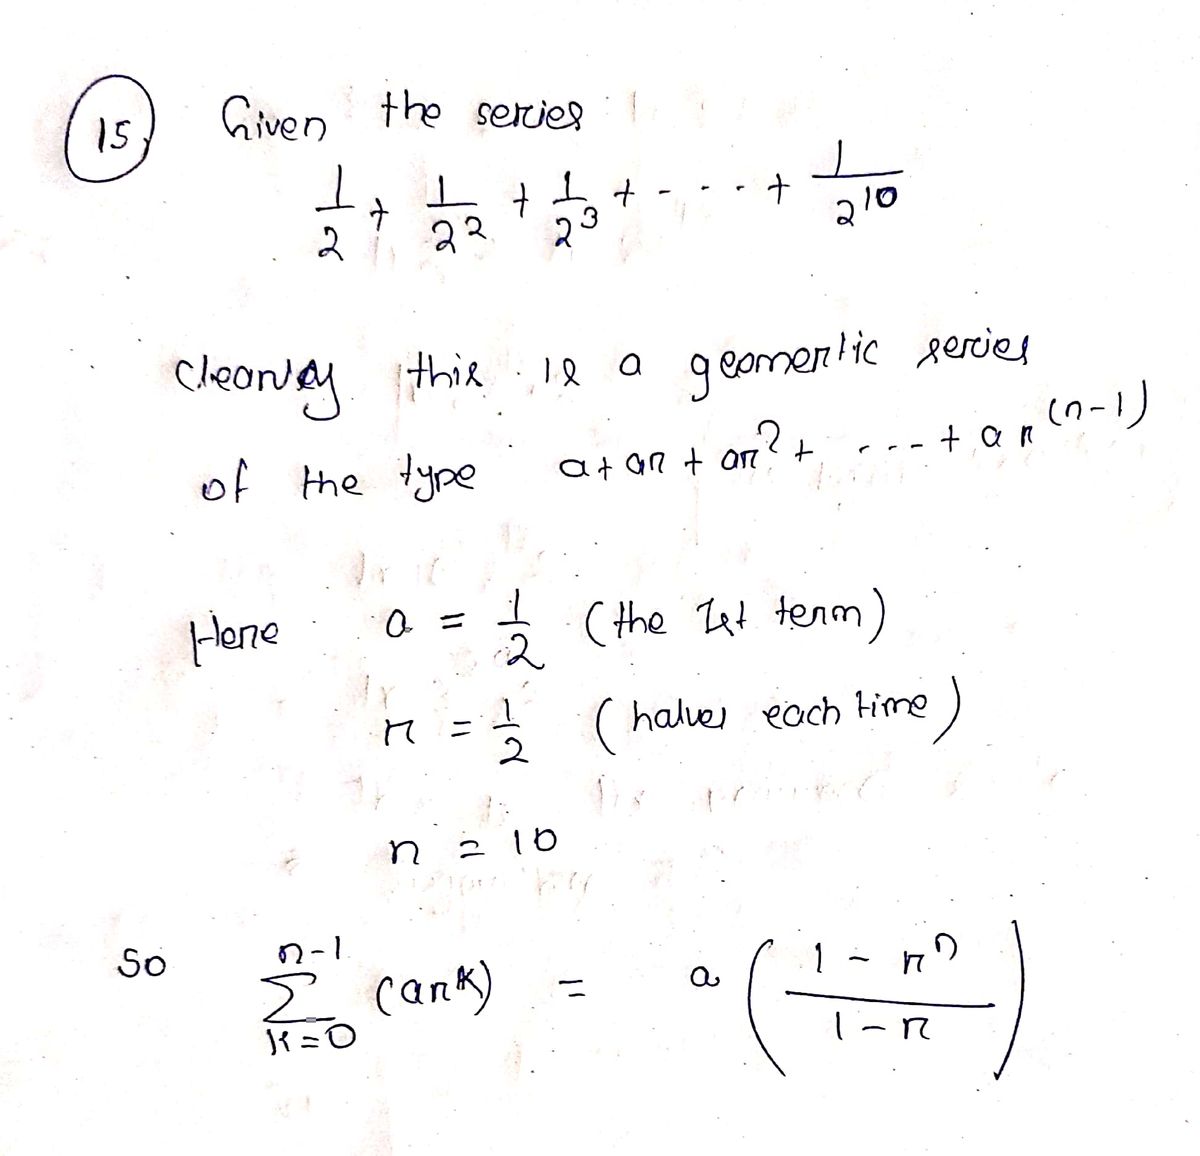 15 Given the series
1/2 + 1/2^2 + 1/2^3 + - - - - + 1/2^10
clearly this is a geomertic series
of the type a + ar + ar^2 + - - - - + ar^(n-1)
Here a = 1/2 (the 1st term)
r = 1/2 (halves each time)
n = 10
So ∑_{k=0}^{n-1} (ar^k) = a ( (1 - r^n) / (1 - r) )